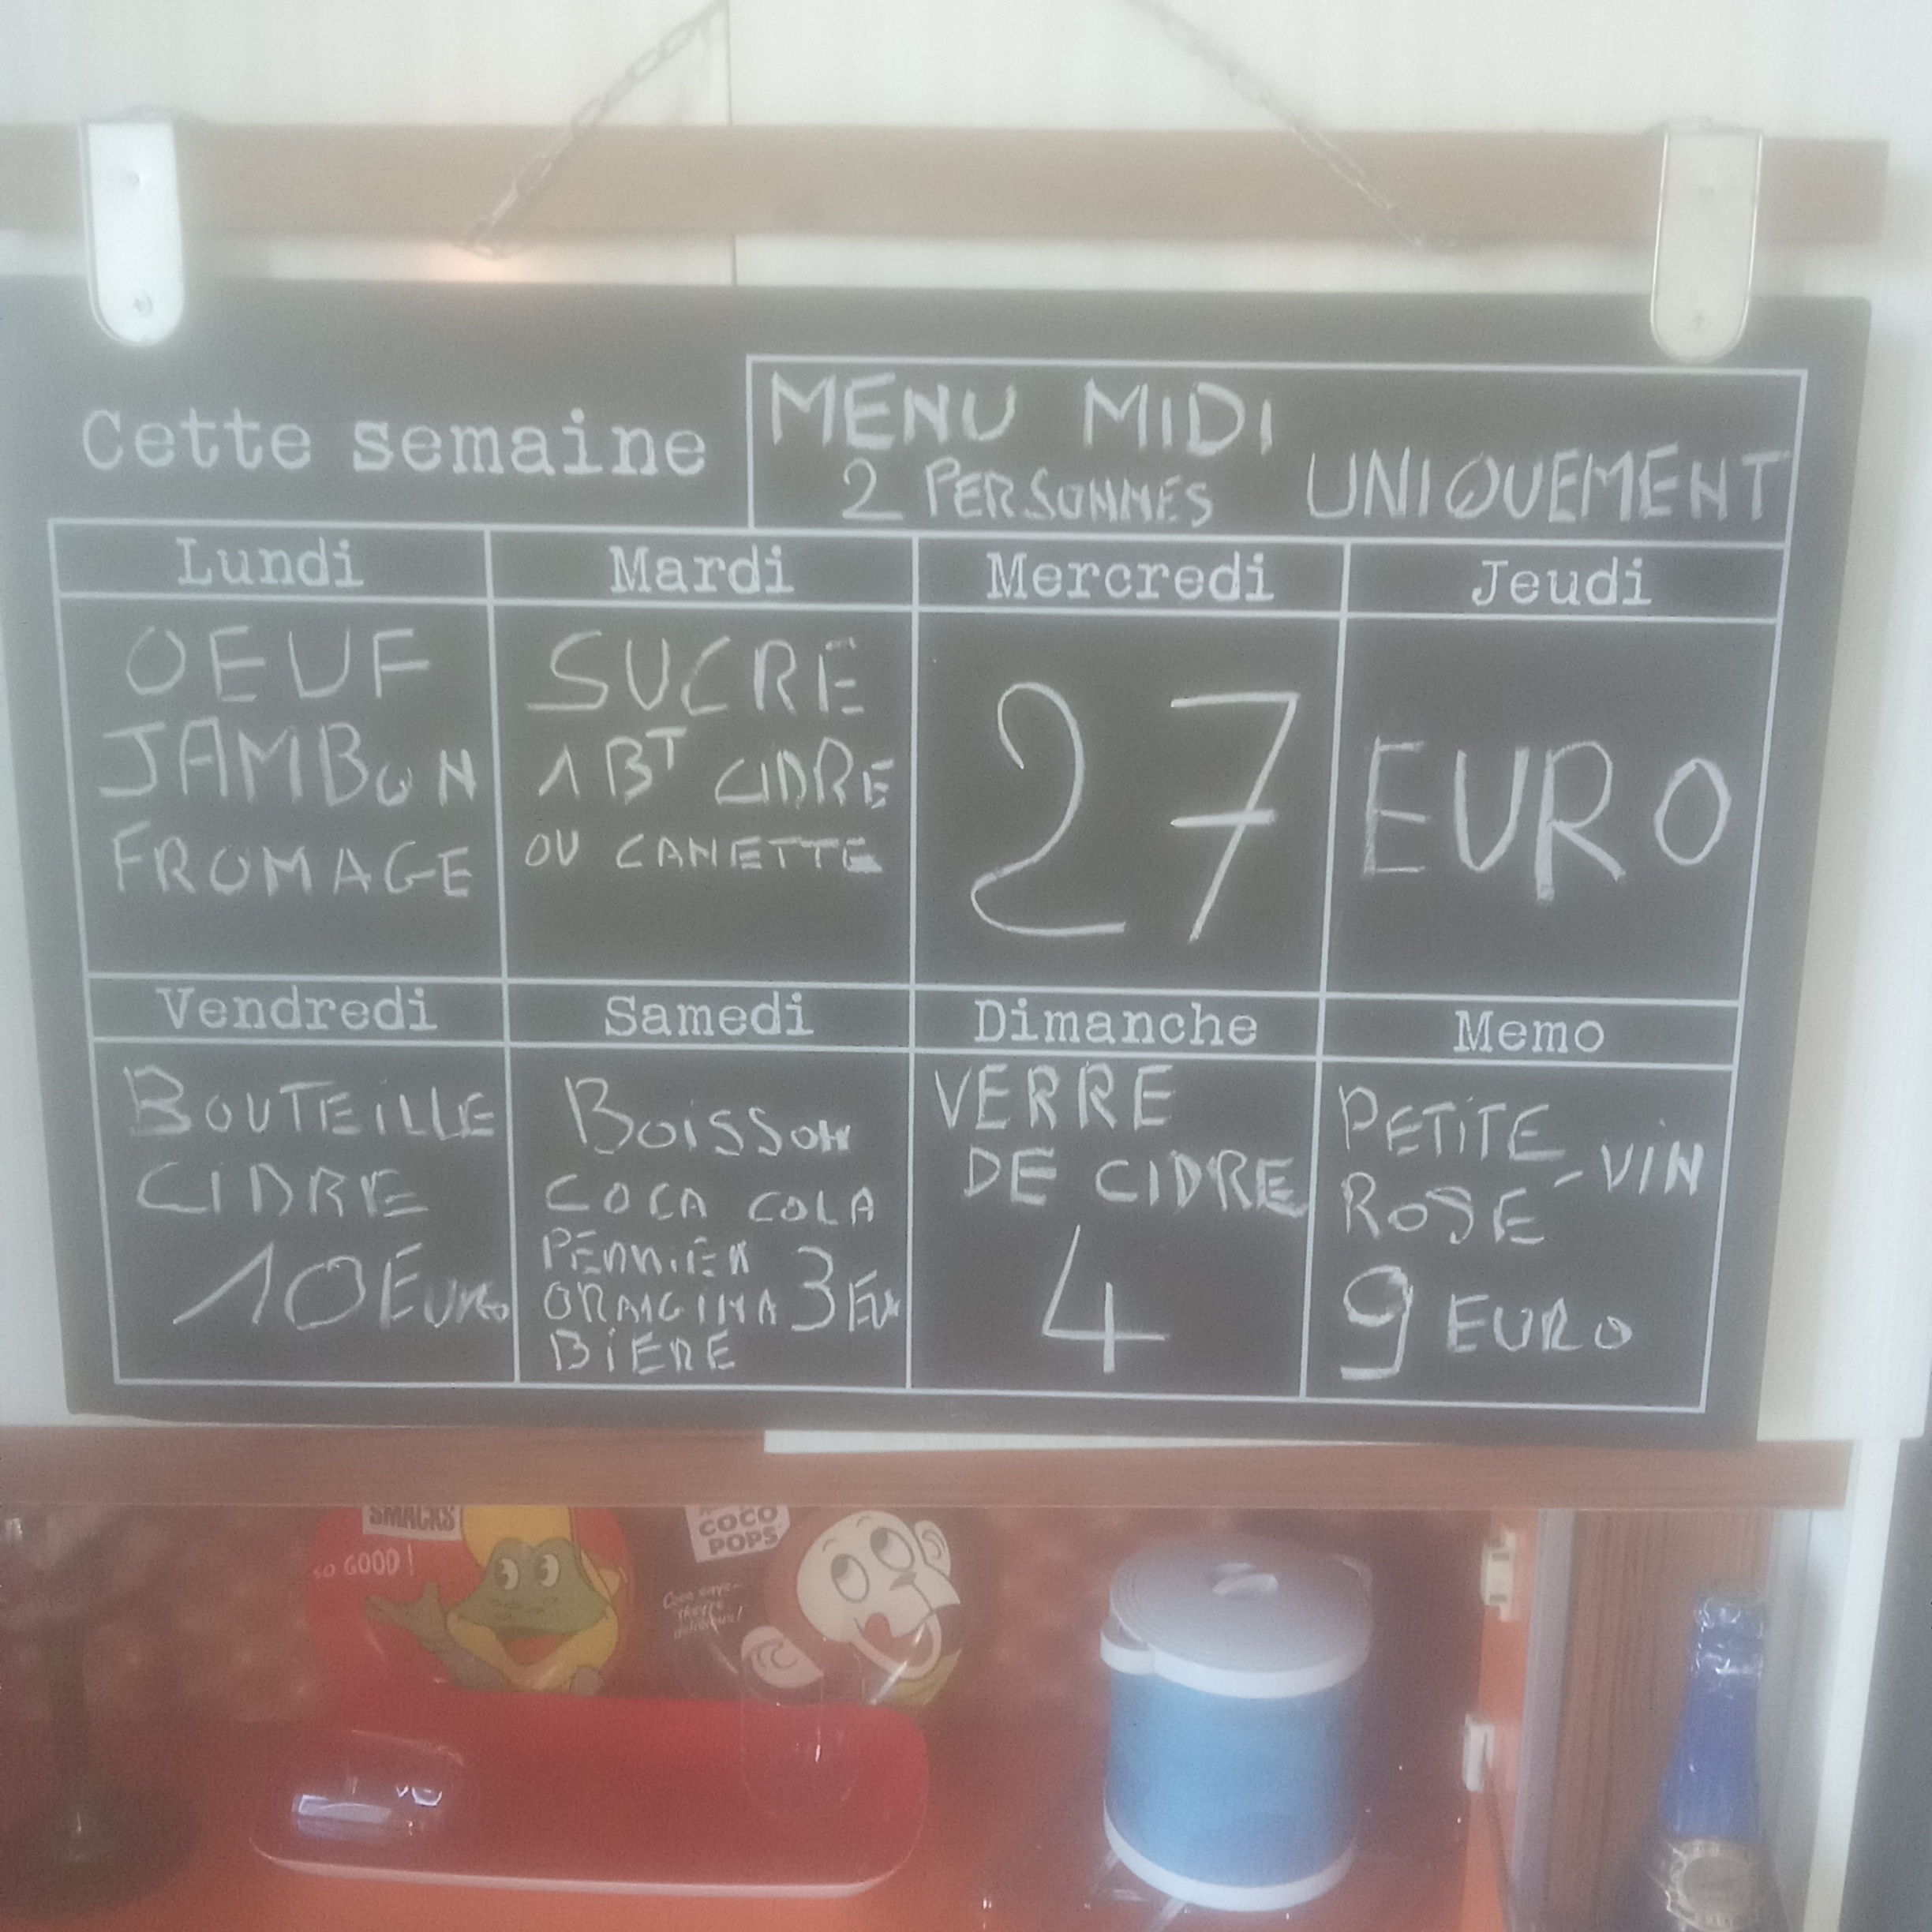 Cette semaine
MENU MIDI
2 PERSONNES UNIQUEMENT
Lundi
OEUF
JAMBON
FROMAGE
Mardi
SUCRE
1 BT CIDRE
OU CANETTE
Mercredi
27
Jeudi
EURO
Vendredi
BOUTEILLE
CIDRE
10 EURO
Samedi
BOISSON
COCA COLA
PERRIER
ORANGINA 3 EU
BIERE
Dimanche
VERRE
DE CIDRE
4
Memo
PETITE - VIN
ROSE
9 EURO
SMACKS
SO GOOD!
COCO
POPS
Coco says-
they're
delicious!